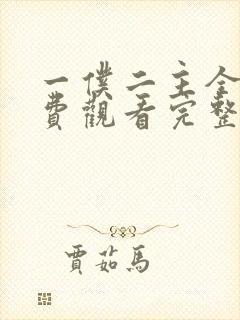 一僕二主全
費觀看完整
賈茹馬